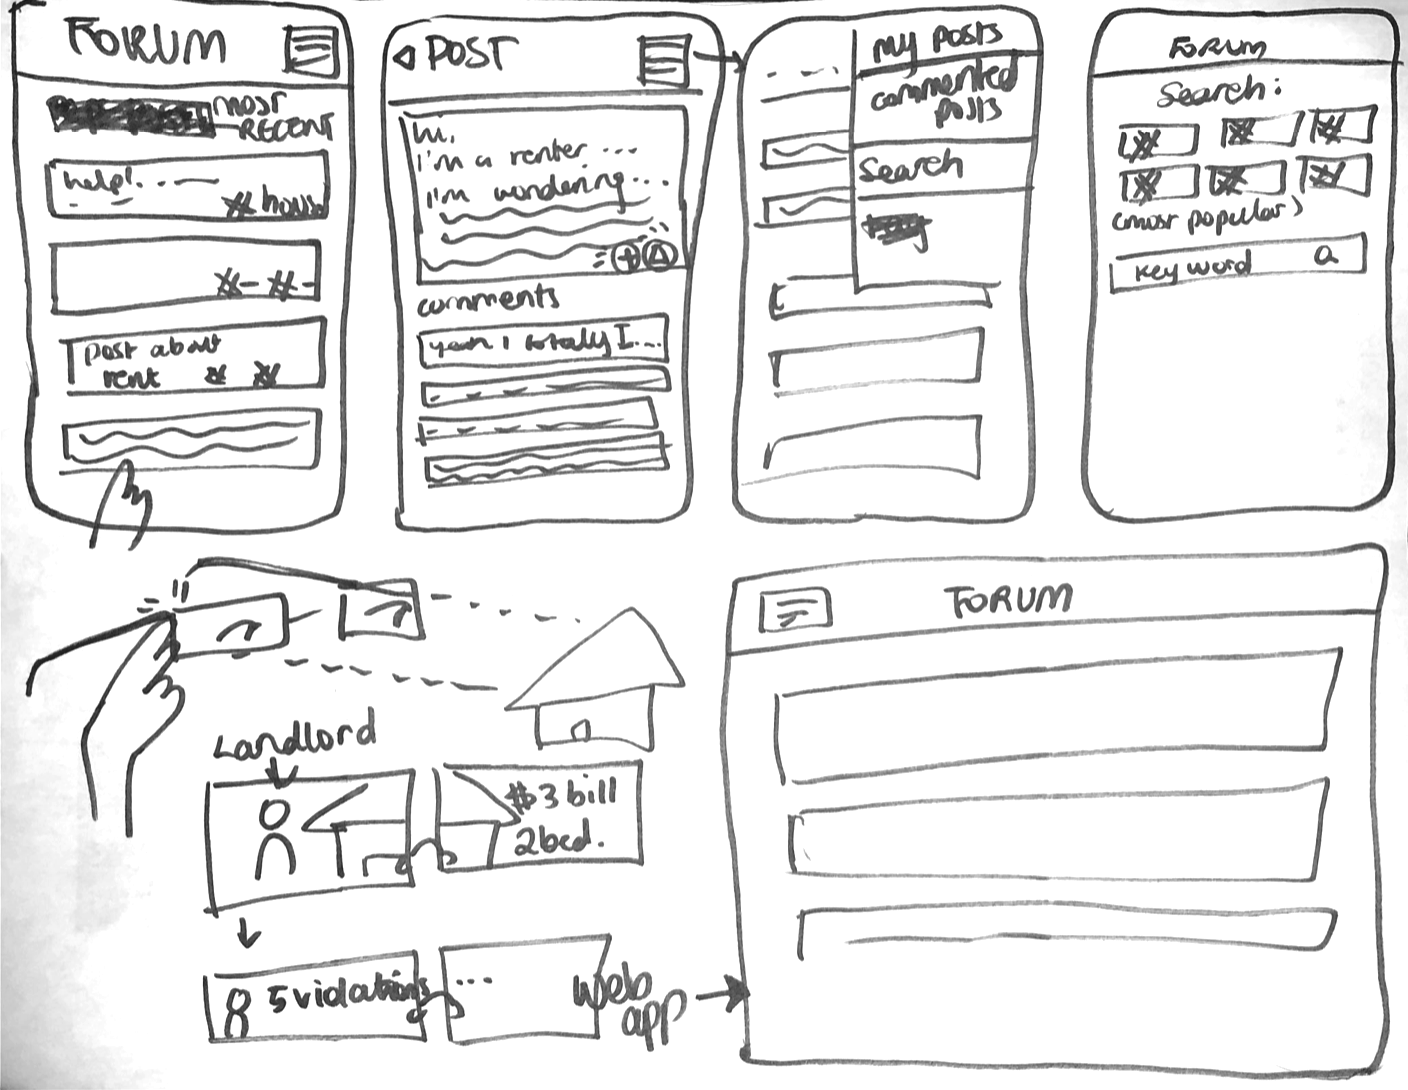 FORUM
MOST
RECENT
help!
# house
#- #-
post about
rent # #
POST
hi,
i'm a renter ...
i'm wondering...
comments
yeah i totally I....
my posts
commented
posts
Search
FORUM
Search:
# # #
# # #
(most popular)
key word
Landlord
$3 bill
2bed.
5 violations
...
web
app
FORUM